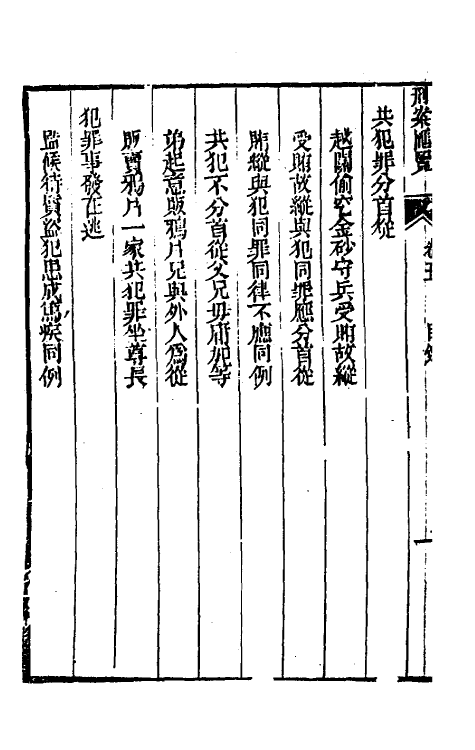 刑案匯覽 卷五 目錄 一
共犯罪分首從
越關偷挖金砂守兵受賄故縱
受賄故縱與犯同罪應分首從
賄縱與犯同罪同律不應同例
共犯不分首從父兄毋庸加等
弟起意販鴉片兄與外人為從
販賣鴉片一家共犯罪坐尊長
犯罪事發在逃
監候待質盜犯患成篤疾同例